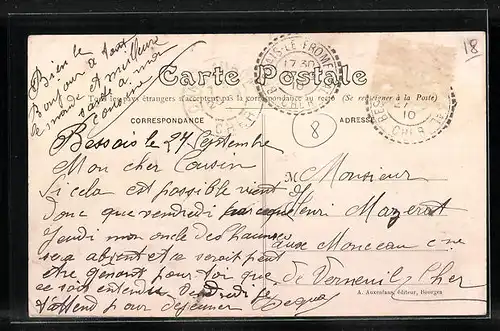 Bien le
Bonjour à tout
le monde et meilleure
santé à ma
cousine
18
Carte Postale
Tous les pays étrangers n'acceptent pas la correspondance au recto (Se renseigner à la Poste)
CORRESPONDANCE
ADRESSE
8
BESSAIS-LE-FROMENTAL
17 30
10
CHER
BES
10
CHER
Bessais le 24 Septembre
Mon cher Cousin
Si cela est possible vient
donc que vendredi parceque
Jeudi mon oncle des
sera absent et se serait peut
être gênant pour toi que
ce soit entendu Vendredi je
t'attend pour déjeuner
M Monsieur
Henri Mazerat
aux Monceau cne
de Verneuil Cher
A. Auxenfans, éditeur, Bourges